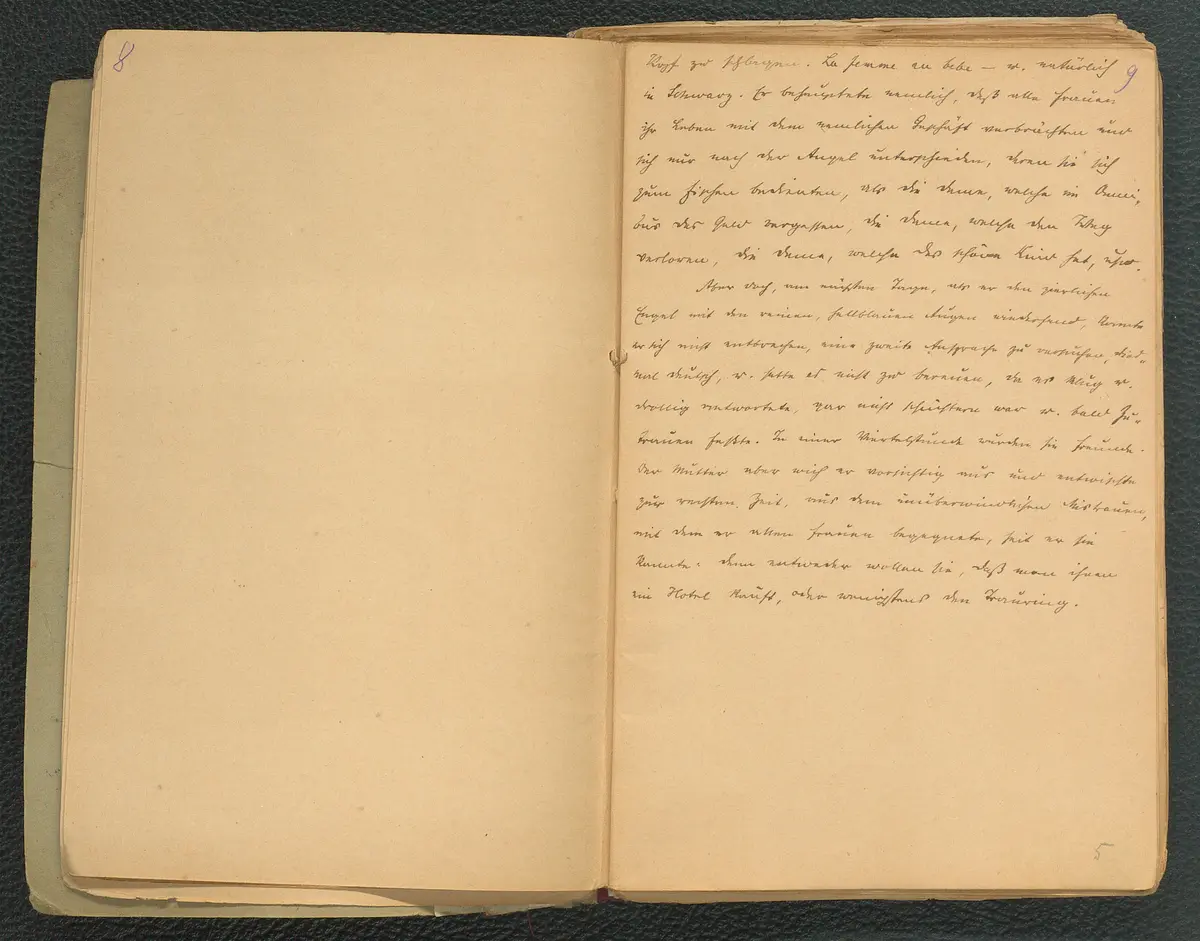 8
9
Kopf zu schlagen. La femme au bebe – u. natürlich
in Schwarz. Er behauptete nemlich, daß alle Frauen
ihr Leben mit dem nemlichen Geschäft verbrächten und
sich nur nach der Angel unterschieden, deren sie sich
zum Fischen bedienten, als die Dame, welche im Omni,
bus das Geld vergessen, die Dame, welche den Weg
verloren, die Dame, welche das schöne Kind hat, usw.
Aber doch, am nächsten Tage, als er den zierlichen
Engel mit den reinen, hellblauen Augen wiederfand, konnte
er sich nicht entbrechen, eine zweite Ansprache zu versuchen, dies=
mal deutsch, u. hatte es nicht zu bereuen, da es klug u.
drollig antwortete, gar nicht schüchtern war u. bald Zu=
trauen faßte. In einer Viertelstunde wurden sie Freunde.
Der Mutter aber wich er vorsichtig aus und entwischte
zur rechten Zeit, aus dem unüberwindlichen Mistrauen,
mit dem er allen Frauen begegnete, seit er sie
kannte: denn entweder wollen sie, daß man ihnen
ein Hotel kauft, oder wenigstens den Trauring.
5